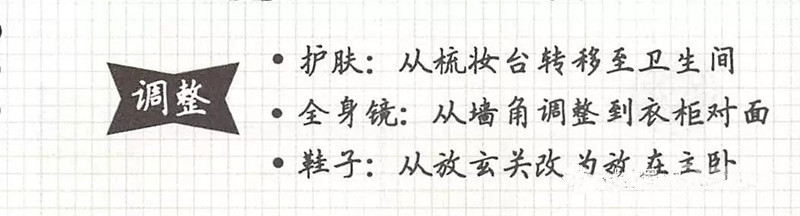 调整
• 护肤：从梳妆台转移至卫生间
• 全身镜：从墙角调整到衣柜对面
• 鞋子：从放玄关改为放在主卧